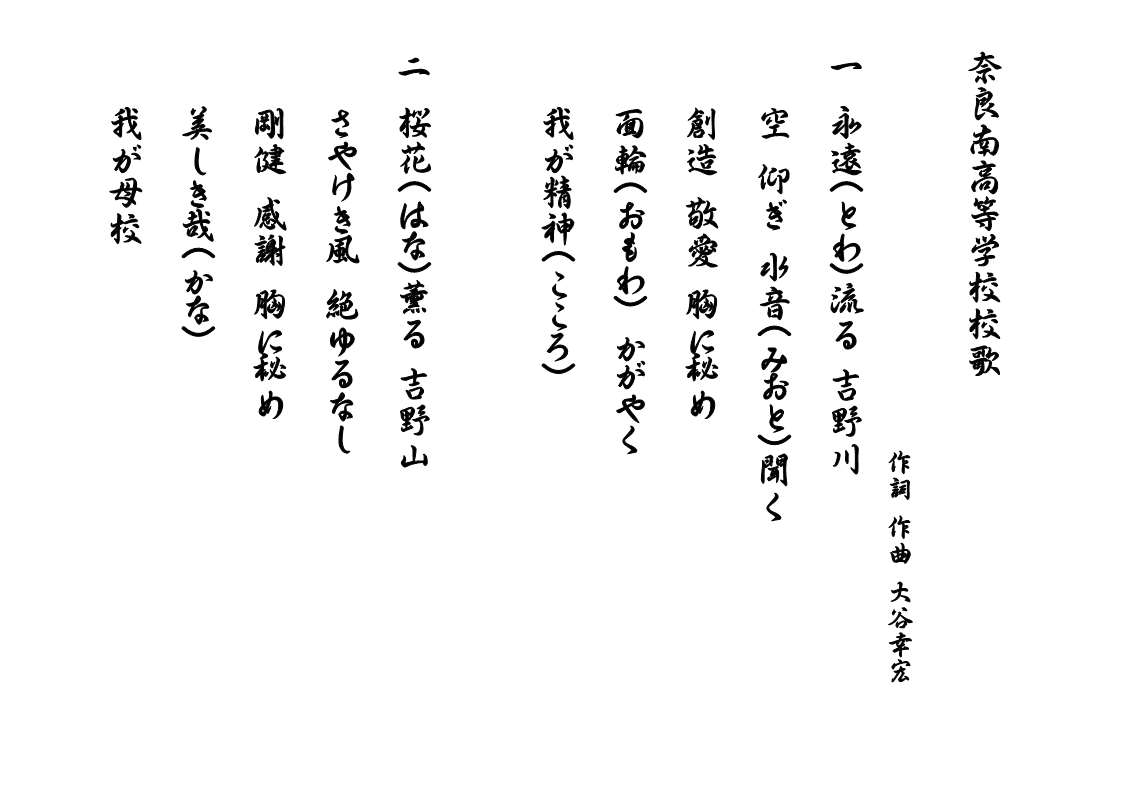 奈良南高等学校校歌
作詞 作曲 大谷幸宏
一 永遠(とわ)流る 吉野川
空 仰ぎ 水音(みおと)聞く
創造 敬愛 胸に秘め
面輪(おもわ) かがやく
我が精神(こころ)
二 桜花(はな)薫る 吉野山
さやけき風 絶ゆるなし
剛健 感謝 胸に秘め
美しき哉(かな)
我が母校